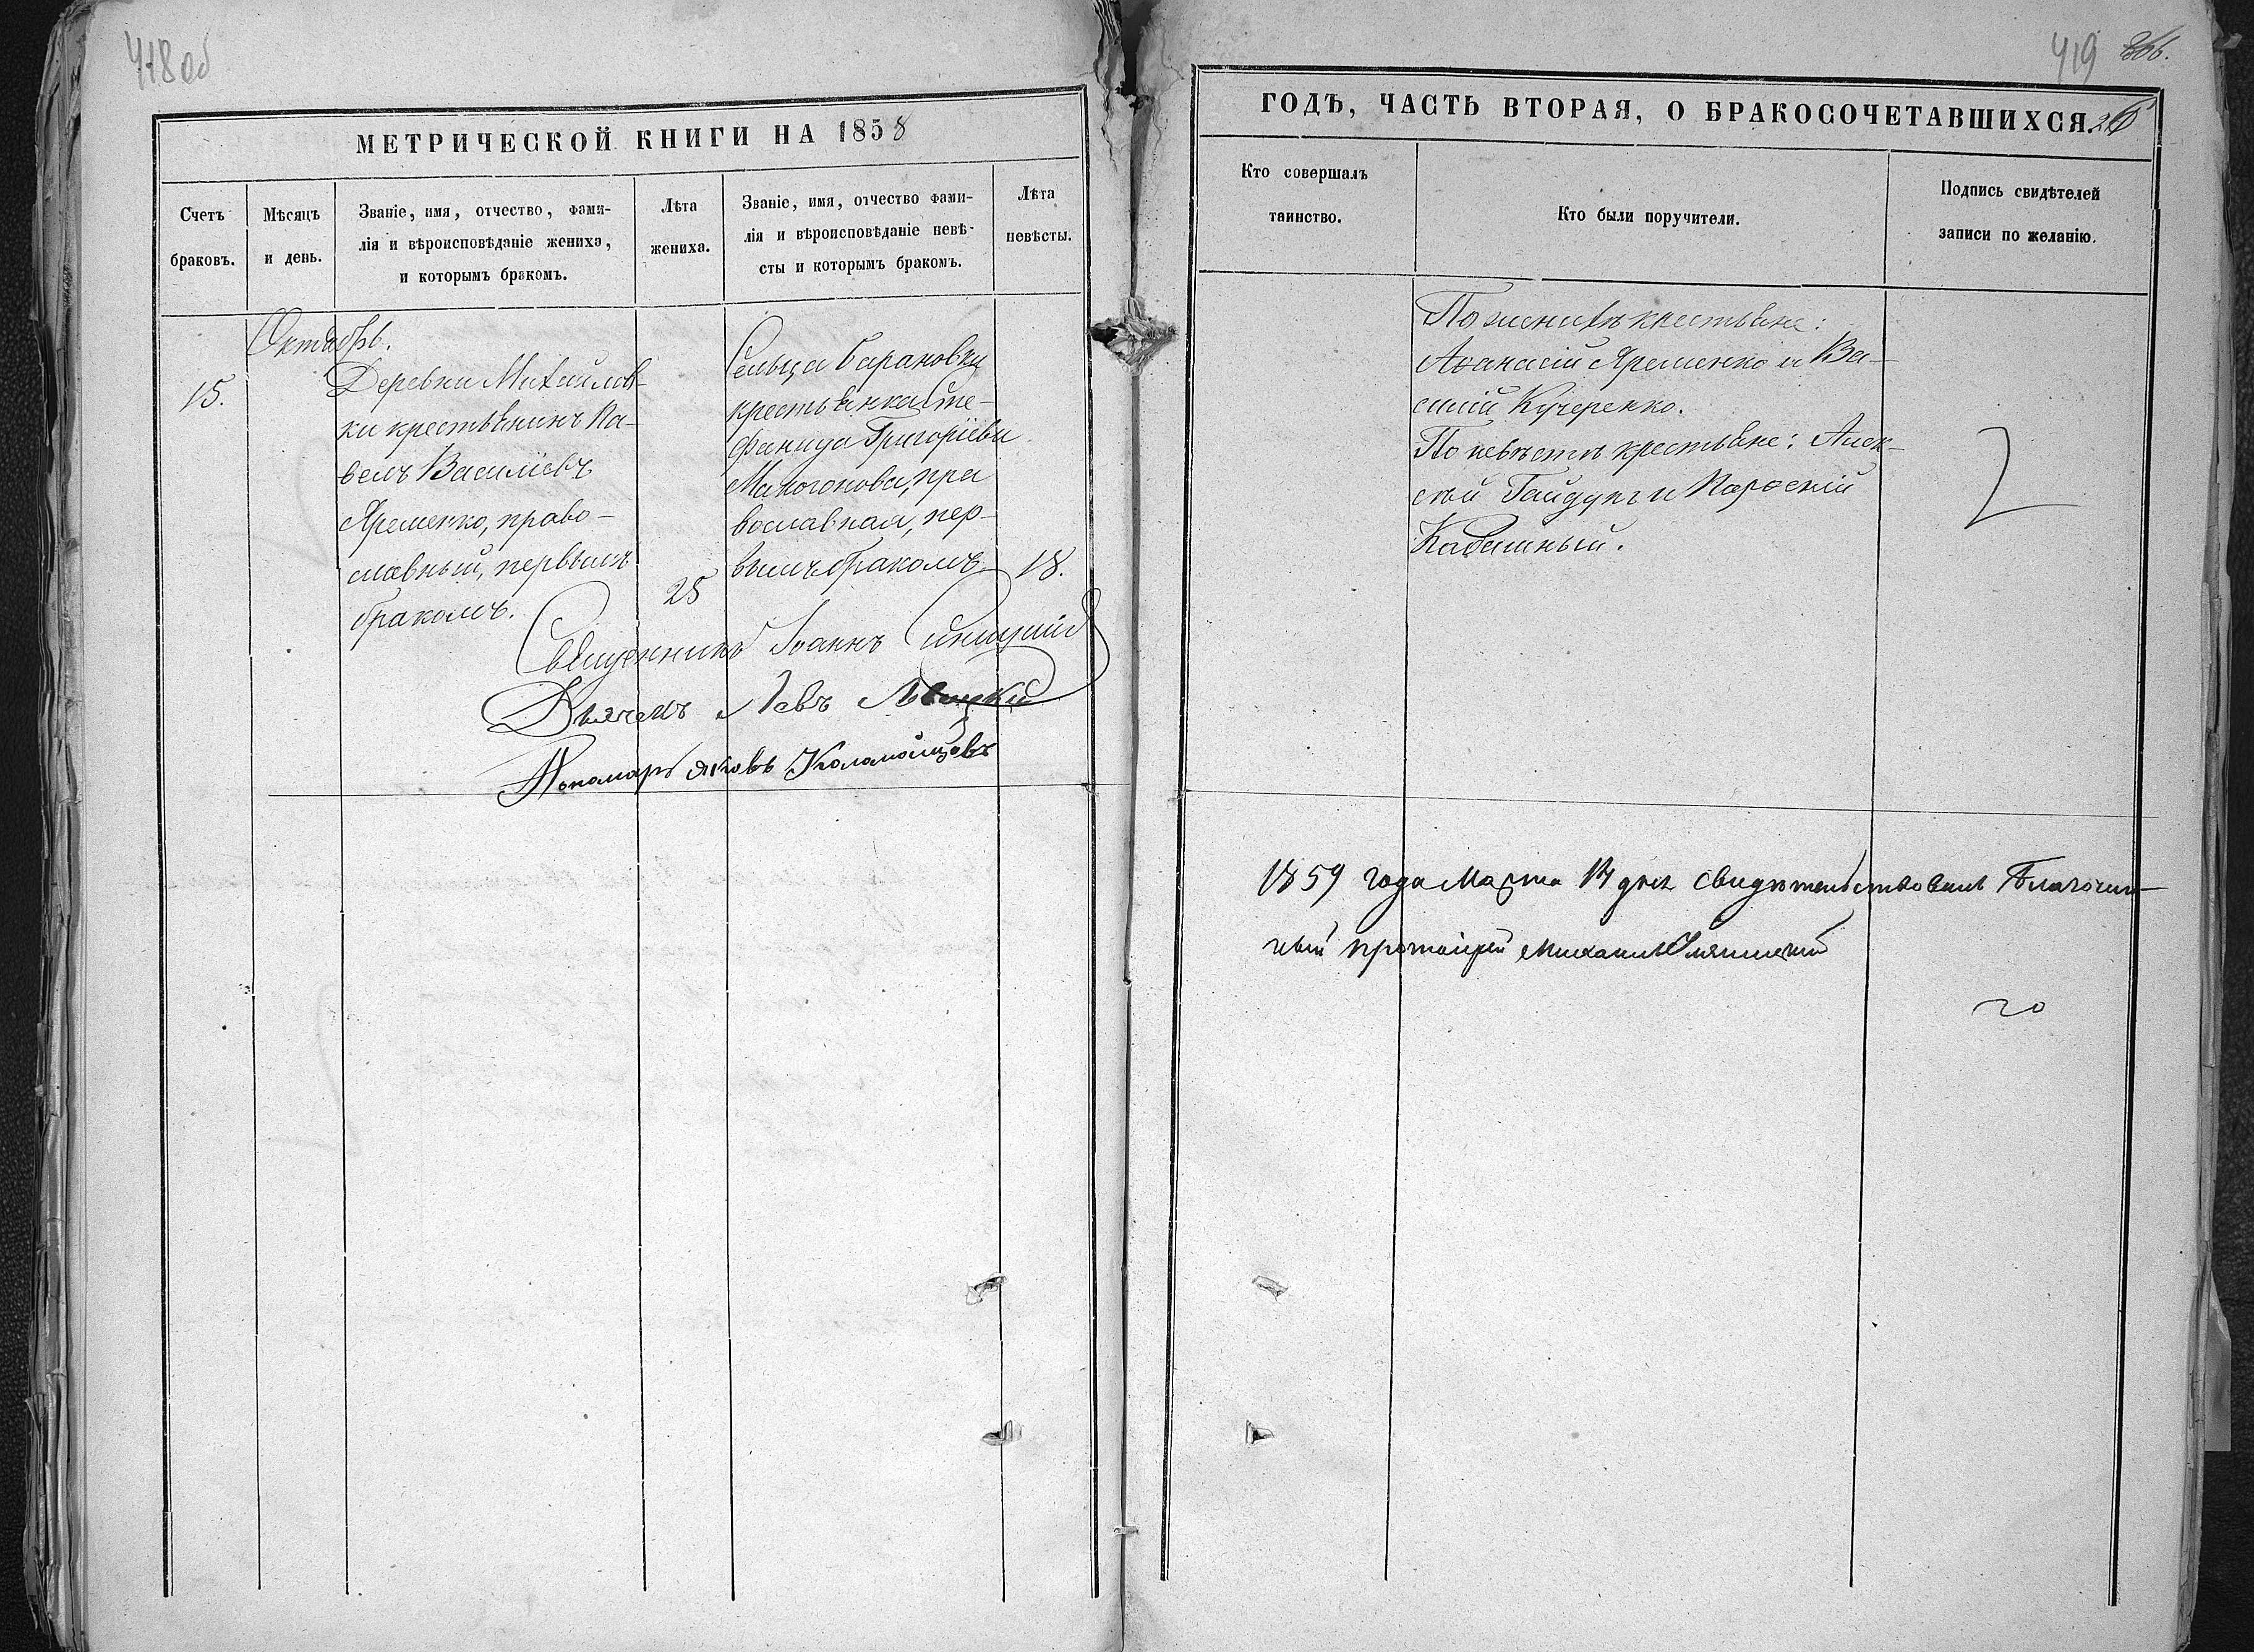 418 об
МЕТРИЧЕСКОЙ КНИГИ НА 1858
Счетъ браковъ.
Мѣсяцъ и день.
Званіе, имя, отчество, фами-
лія и вѣроисповѣданіе жениха,
и которымъ бракомъ.
Лѣта жениха.
Званіе, имя, отчество фами-
лія и вѣроисповѣданіе невѣ-
сты и которымъ бракомъ.
Лѣта невѣсты.
Октябрь.
15.
Деревни Михайлов-
ки крестьянинъ Па-
велъ Василіевъ
Яременко, право-
славный, первымъ
бракомъ.
25
Сельца Барановки
крестьянка Сте-
фанида Григоріева
Макогонова, пра
вославная, пер-
вымъ бракомъ.
18.
Священникъ Іоаннъ
Дьячекъ Левъ
Пономарь Яковъ Коломойцевъ
419
366.
ГОДЪ, ЧАСТЬ ВТОРАЯ, О БРАКОСОЧЕТАВШИХСЯ. 26
Кто совершалъ
таинство.
Кто были поручители.
Подпись свидѣтелей
записи по желанію.
По женихѣ крестьяне:
Аѳанасій Яременко и Ва-
силій Кучеренко.
По невѣстѣ крестьяне: Алек-
сѣй Гайдукъ и
2
1859 года Марта дня свидѣтельствовалъ Благочин-
ный протоіерей Михаилъ
20